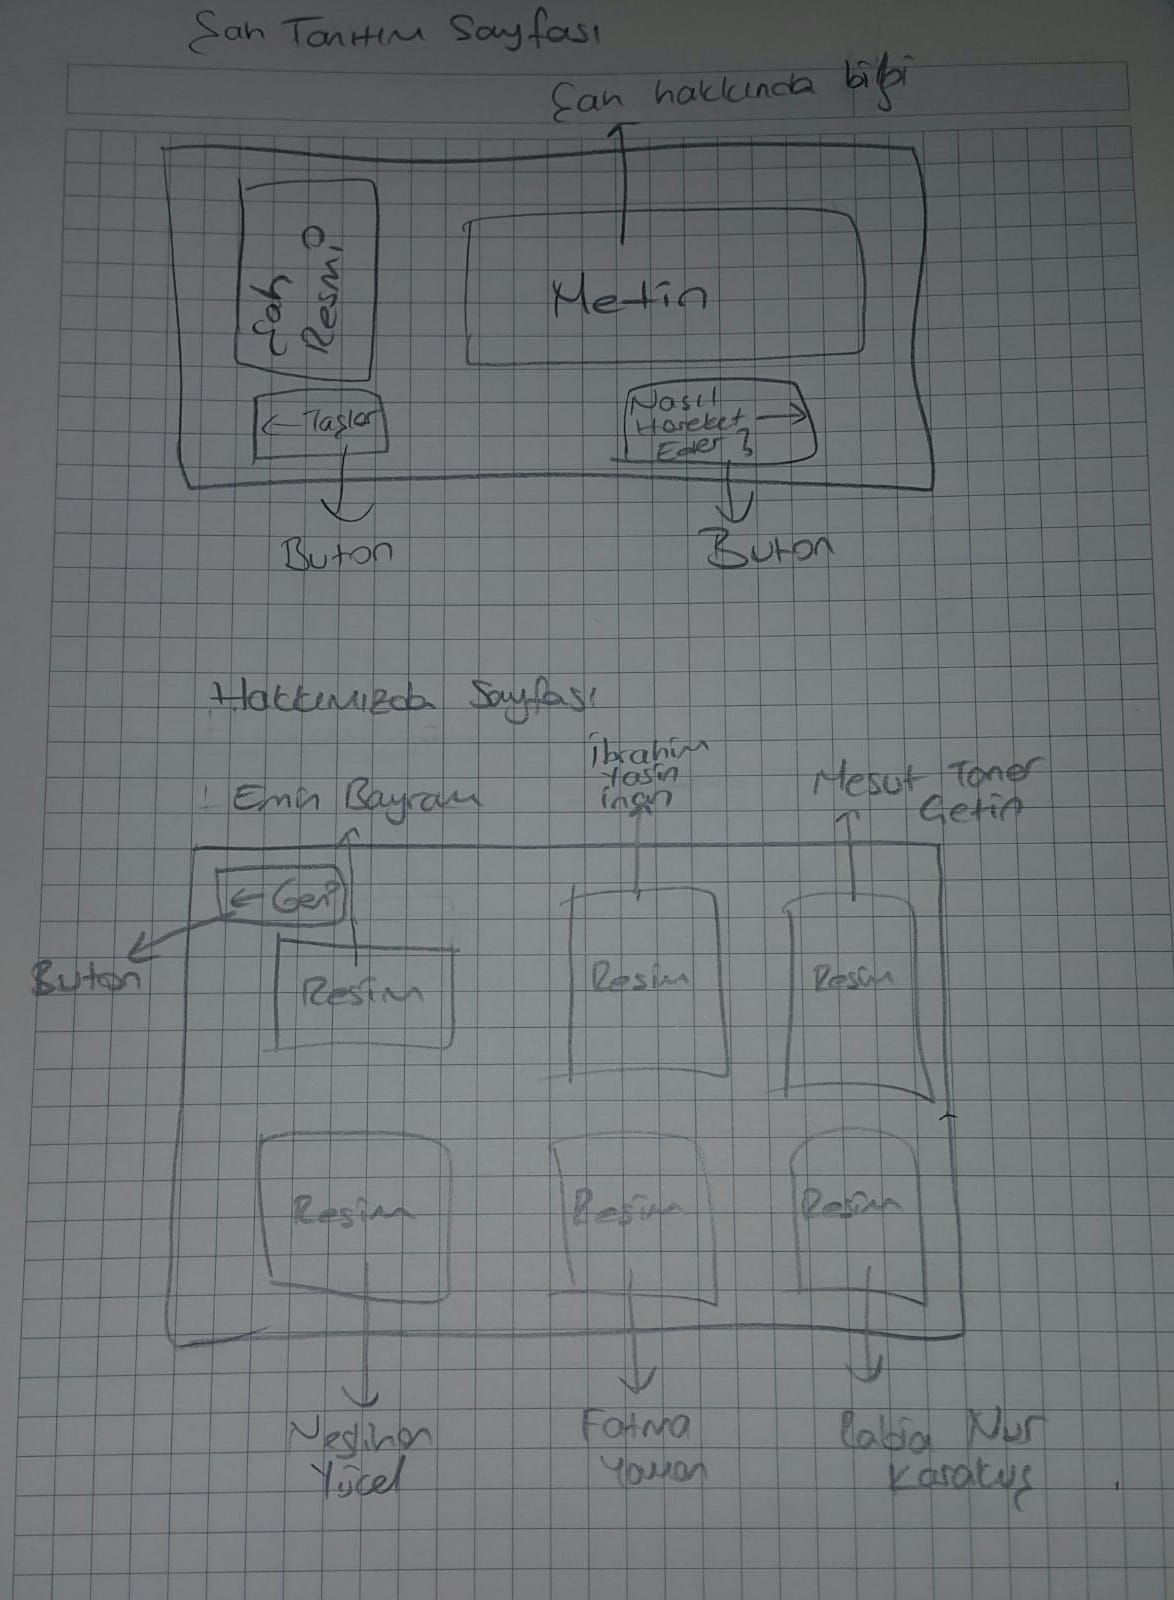 Şah Tanıtım Sayfası
Şah hakkında bilgi
Şah
Resmi
Metin
← Taşlar
Nasıl
Hareket →
Eder ?
Buton
Buton
Hakkımızda Sayfası
Emin Bayram
İbrahim
Yasin
İnan
Mesut Taner
Çetin
← Geri
Buton
Resim
Resim
Resim
Resim
Resim
Resim
Neslihan
Yücel
Fatma
Yaman
Rabia Nur
Karakuş